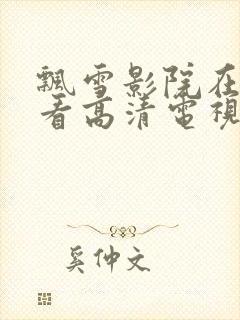 飄雪影院在
看高清電視
奚仲文